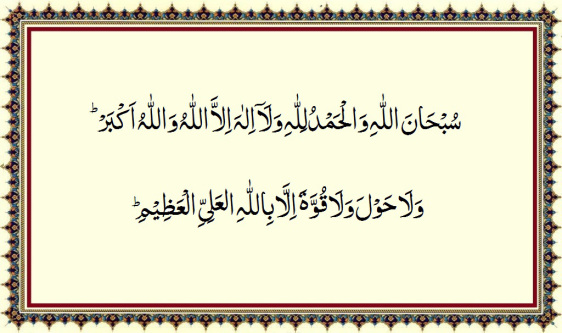 سُبْحَانَ اللّٰهِ وَالْحَمْدُ لِلّٰهِ وَلَآ اِلٰهَ اِلَّا اللّٰهُ وَاللّٰهُ اَكْبَرْ ؕ
وَلَا حَوْلَ وَلَا قُوَّةَ اِلَّا بِاللّٰهِ العَلِيِّ الْعَظِيْمِ ؕ